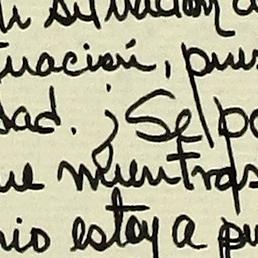 situación
tuación, pues
dad. ¿Se po
ue mientras
nio estoy a pu